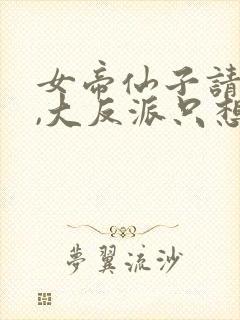 女帝仙子請
,大反派只想
夢翼流沙